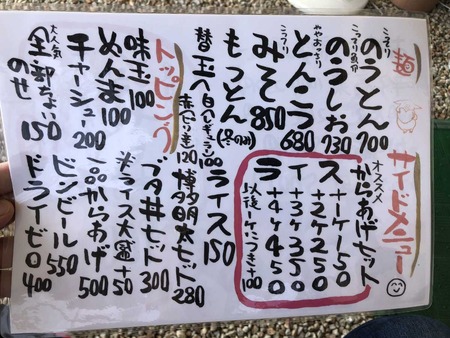 麺
こってり
のうとん 700
こってり魚介
のうしお 730
ややあっさり
とんこう 680
こってり
みそ 850
もっとん (冬のみ)
替玉 白(レギュラー) 100
赤(ピリ辛) 120
トッピング
味玉 100
めんま 100
チャーシュー 200
大人気
全部ちょい
のせ 150
サイドメニュー
オススメ
からあげセット
ス +1ケ 150
イ +2ケ 250
+3ケ 350
ラ +4ケ 450
以後一ケにつき+100
ライス 150
博多明太セット 280
ブタ丼セット 300
※ライス大盛 +50
一品からあげ 500
ビンビール 550
ドライゼロ 400